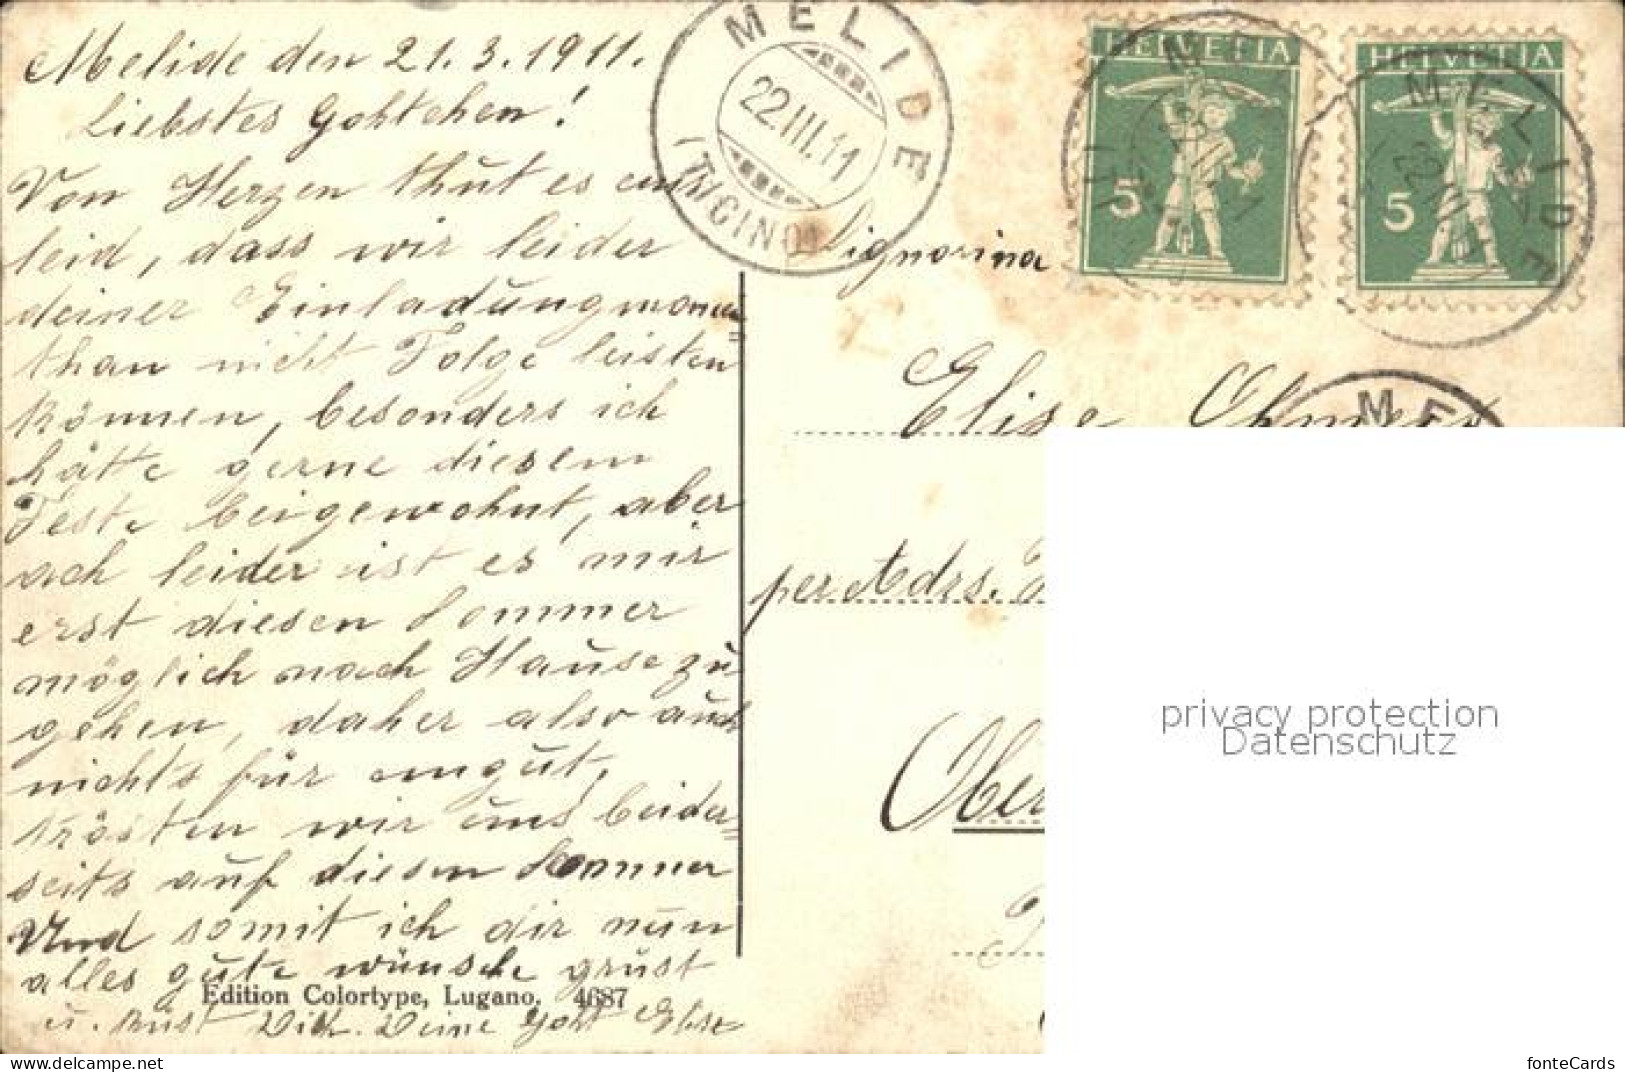 Melide den 21. 3. 1911.
Liebstes Gohtchen!
Von Herzen thut es uns
leid, dass wir leider
deiner Einladung momen=
than nicht Folge leisten
können, besonders ich
hätte gerne diesem
Feste beigewohnt, aber
ach leider ist es mir
erst diesen Sommer
möglich nach Hause zu
gehen, daher also auch
nichts für ungut,
trösten wir uns beider=
seits auf diesen Sommer
Und somit ich dir nun
alles gute wünsche grüst
u. küst Dich. Deine Goht Elise
Edition Colortype, Lugano. 4687
MELIDE
22.III.11
(TICINO)
HELVETIA
5
MELIDE
HELVETIA
5
MELIDE
Signorina
Elise
ME
per Adrs.
Ober
privacy protection
Datenschutz
fonteCards